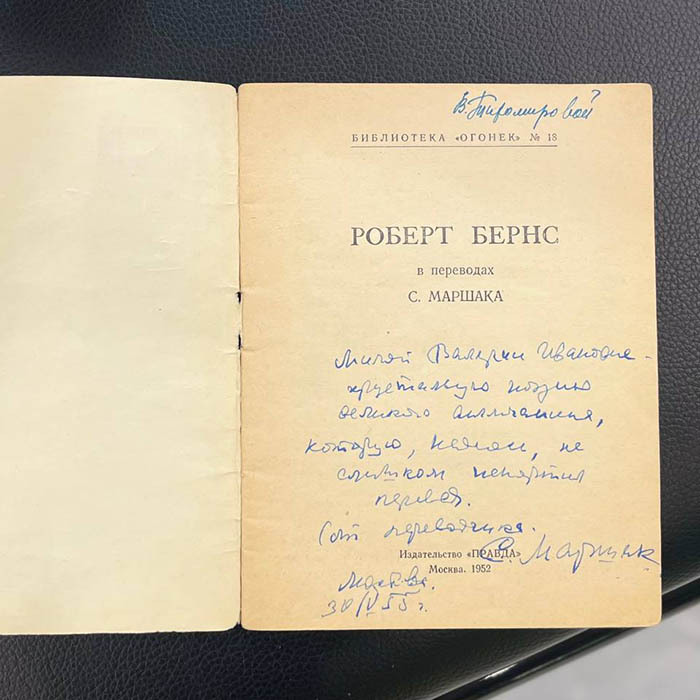 В. Тихомировой
БИБЛИОТЕКА «ОГОНЕК» № 18
РОБЕРТ БЕРНС
в переводах
С. МАРШАКА
Милой Валерии Ивановне -
хрустальную поэзию
великого англичанина,
которую, надеюсь, не
слишком испортил
перевод.
От переводчика.
С. Маршак
Издательство «ПРАВДА»
Москва. 1952
Москва.
30/IV 55 г.